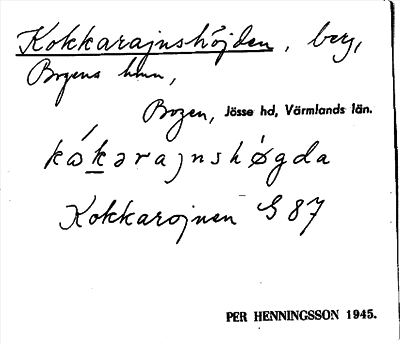 Kokkarajnshöjden, berg,
Bogens hmn,
Bogen, Jösse hd, Värmlands län.
kåkərajnshøgda
Kokkarojnen G 87
PER HENNINGSSON 1945.